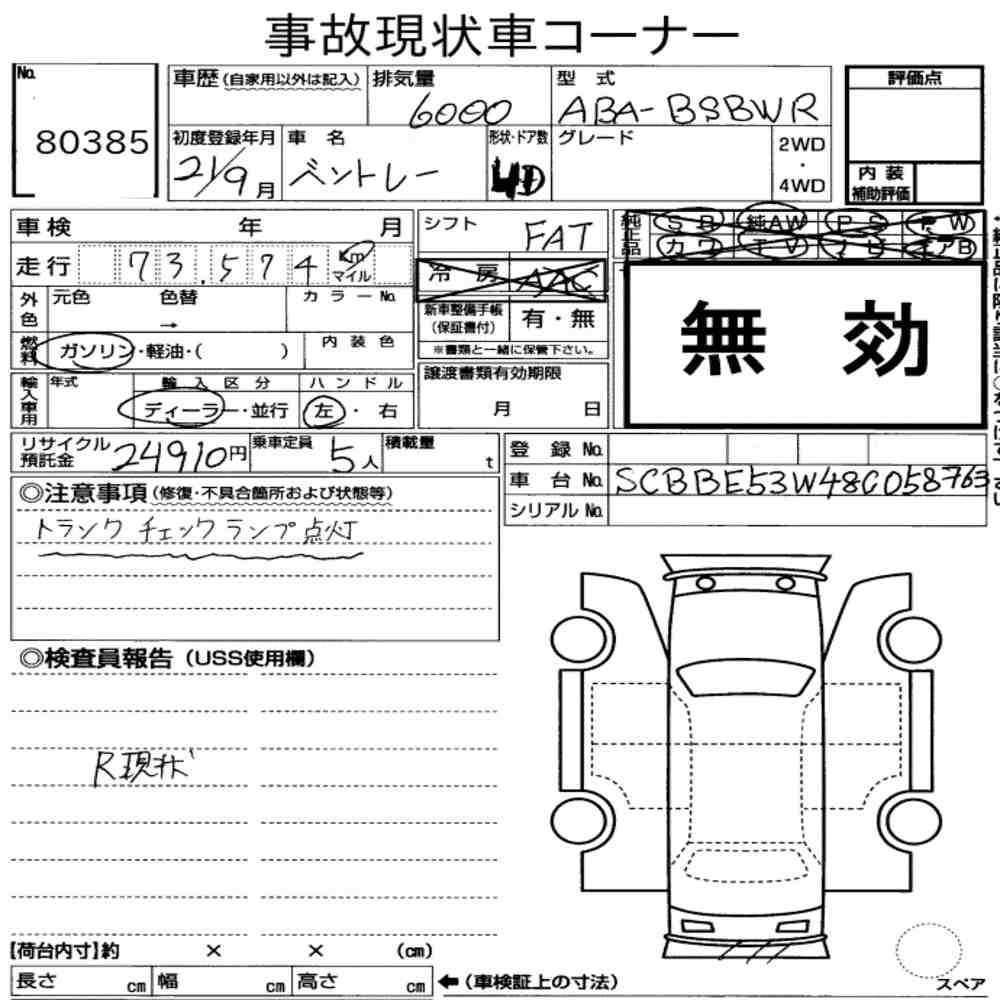 事故現状車コーナー
No. 80385
車歴 (自家用以外は記入) 排気量 6000 型式 ABA-BSBWR
初度登録年月 21/9月 車名 ベントレー 形状・ドア数 4D グレード 2WD・4WD
評価点
内装補助評価
車検 年 月
走行 73.574 km マイル
外色 元色 色替 → カラーNo.
燃料 ガソリン・軽油・( ) 内装色
輸入車用 年式 輸入区分 ディーラー・並行 ハンドル 左・右
シフト FAT
冷房 AAC
新車整備手帳(保証書付) 有・無
※書類と一緒に保管下さい。
譲渡書類有効期限 月 日
純正品 SR 純AW PS PW
カワ TV ナビ エアB
無効
リサイクル預託金 24910円 乗車定員 5人 積載量 t
登録No.
車台No. SCBBE53W48C058763
シリアルNo.
◎注意事項(修復・不具合箇所および状態等)
トランク チェックランプ点灯
◎検査員報告(USS使用欄)
R現状
【荷台内寸】約 × × (cm)
長さ cm 幅 cm 高さ cm ←(車検証上の寸法)
スペア